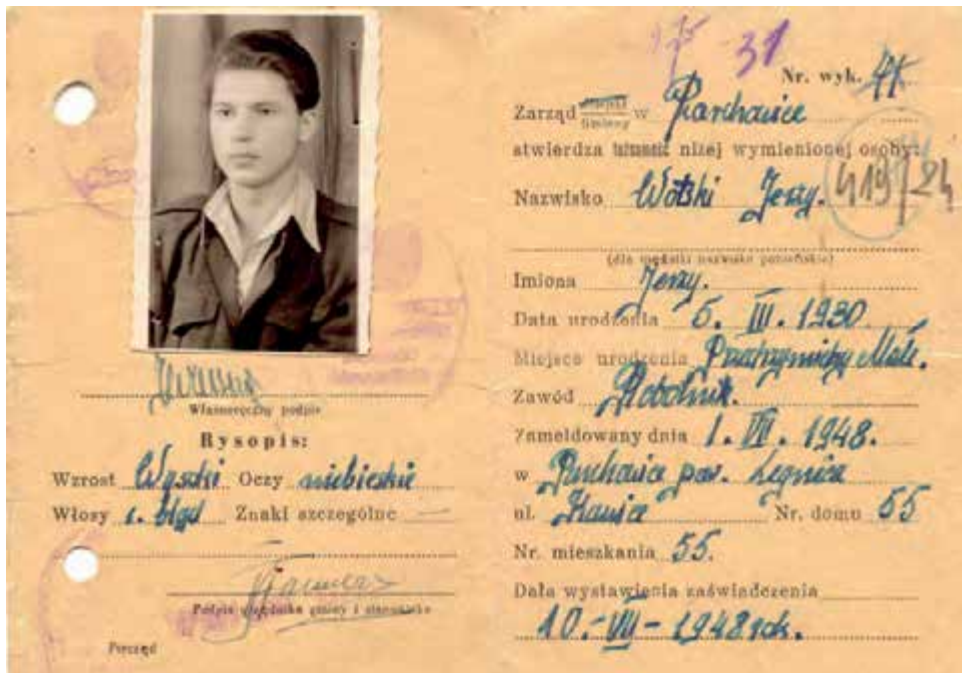 Własnoręczny podpis
Rysopis:
Wzrost Wysoki Oczy niebieskie
Włosy c. błąd Znaki szczególne —
Podpis urzędnika gminy i stanowisko
Pieczęć
31
Nr. wyk. 41
Zarząd Miejski Gminny w Parchowice
stwierdza tożsamość niżej wymienionej osoby:
Nazwisko Wolski Jerzy.
41972A
(dla mężatki nazwisko panieńskie)
Imiona Jerzy.
Data urodzenia 5. III. 1930.
Miejsce urodzenia Małe.
Zawód Robotnik.
Zameldowany dnia 1. VII. 1948.
w Parchowice pow. Legnica
ul. Nr. domu 55
Nr. mieszkania 55.
Data wystawienia zaświadczenia
10.-VII-1948 rok.